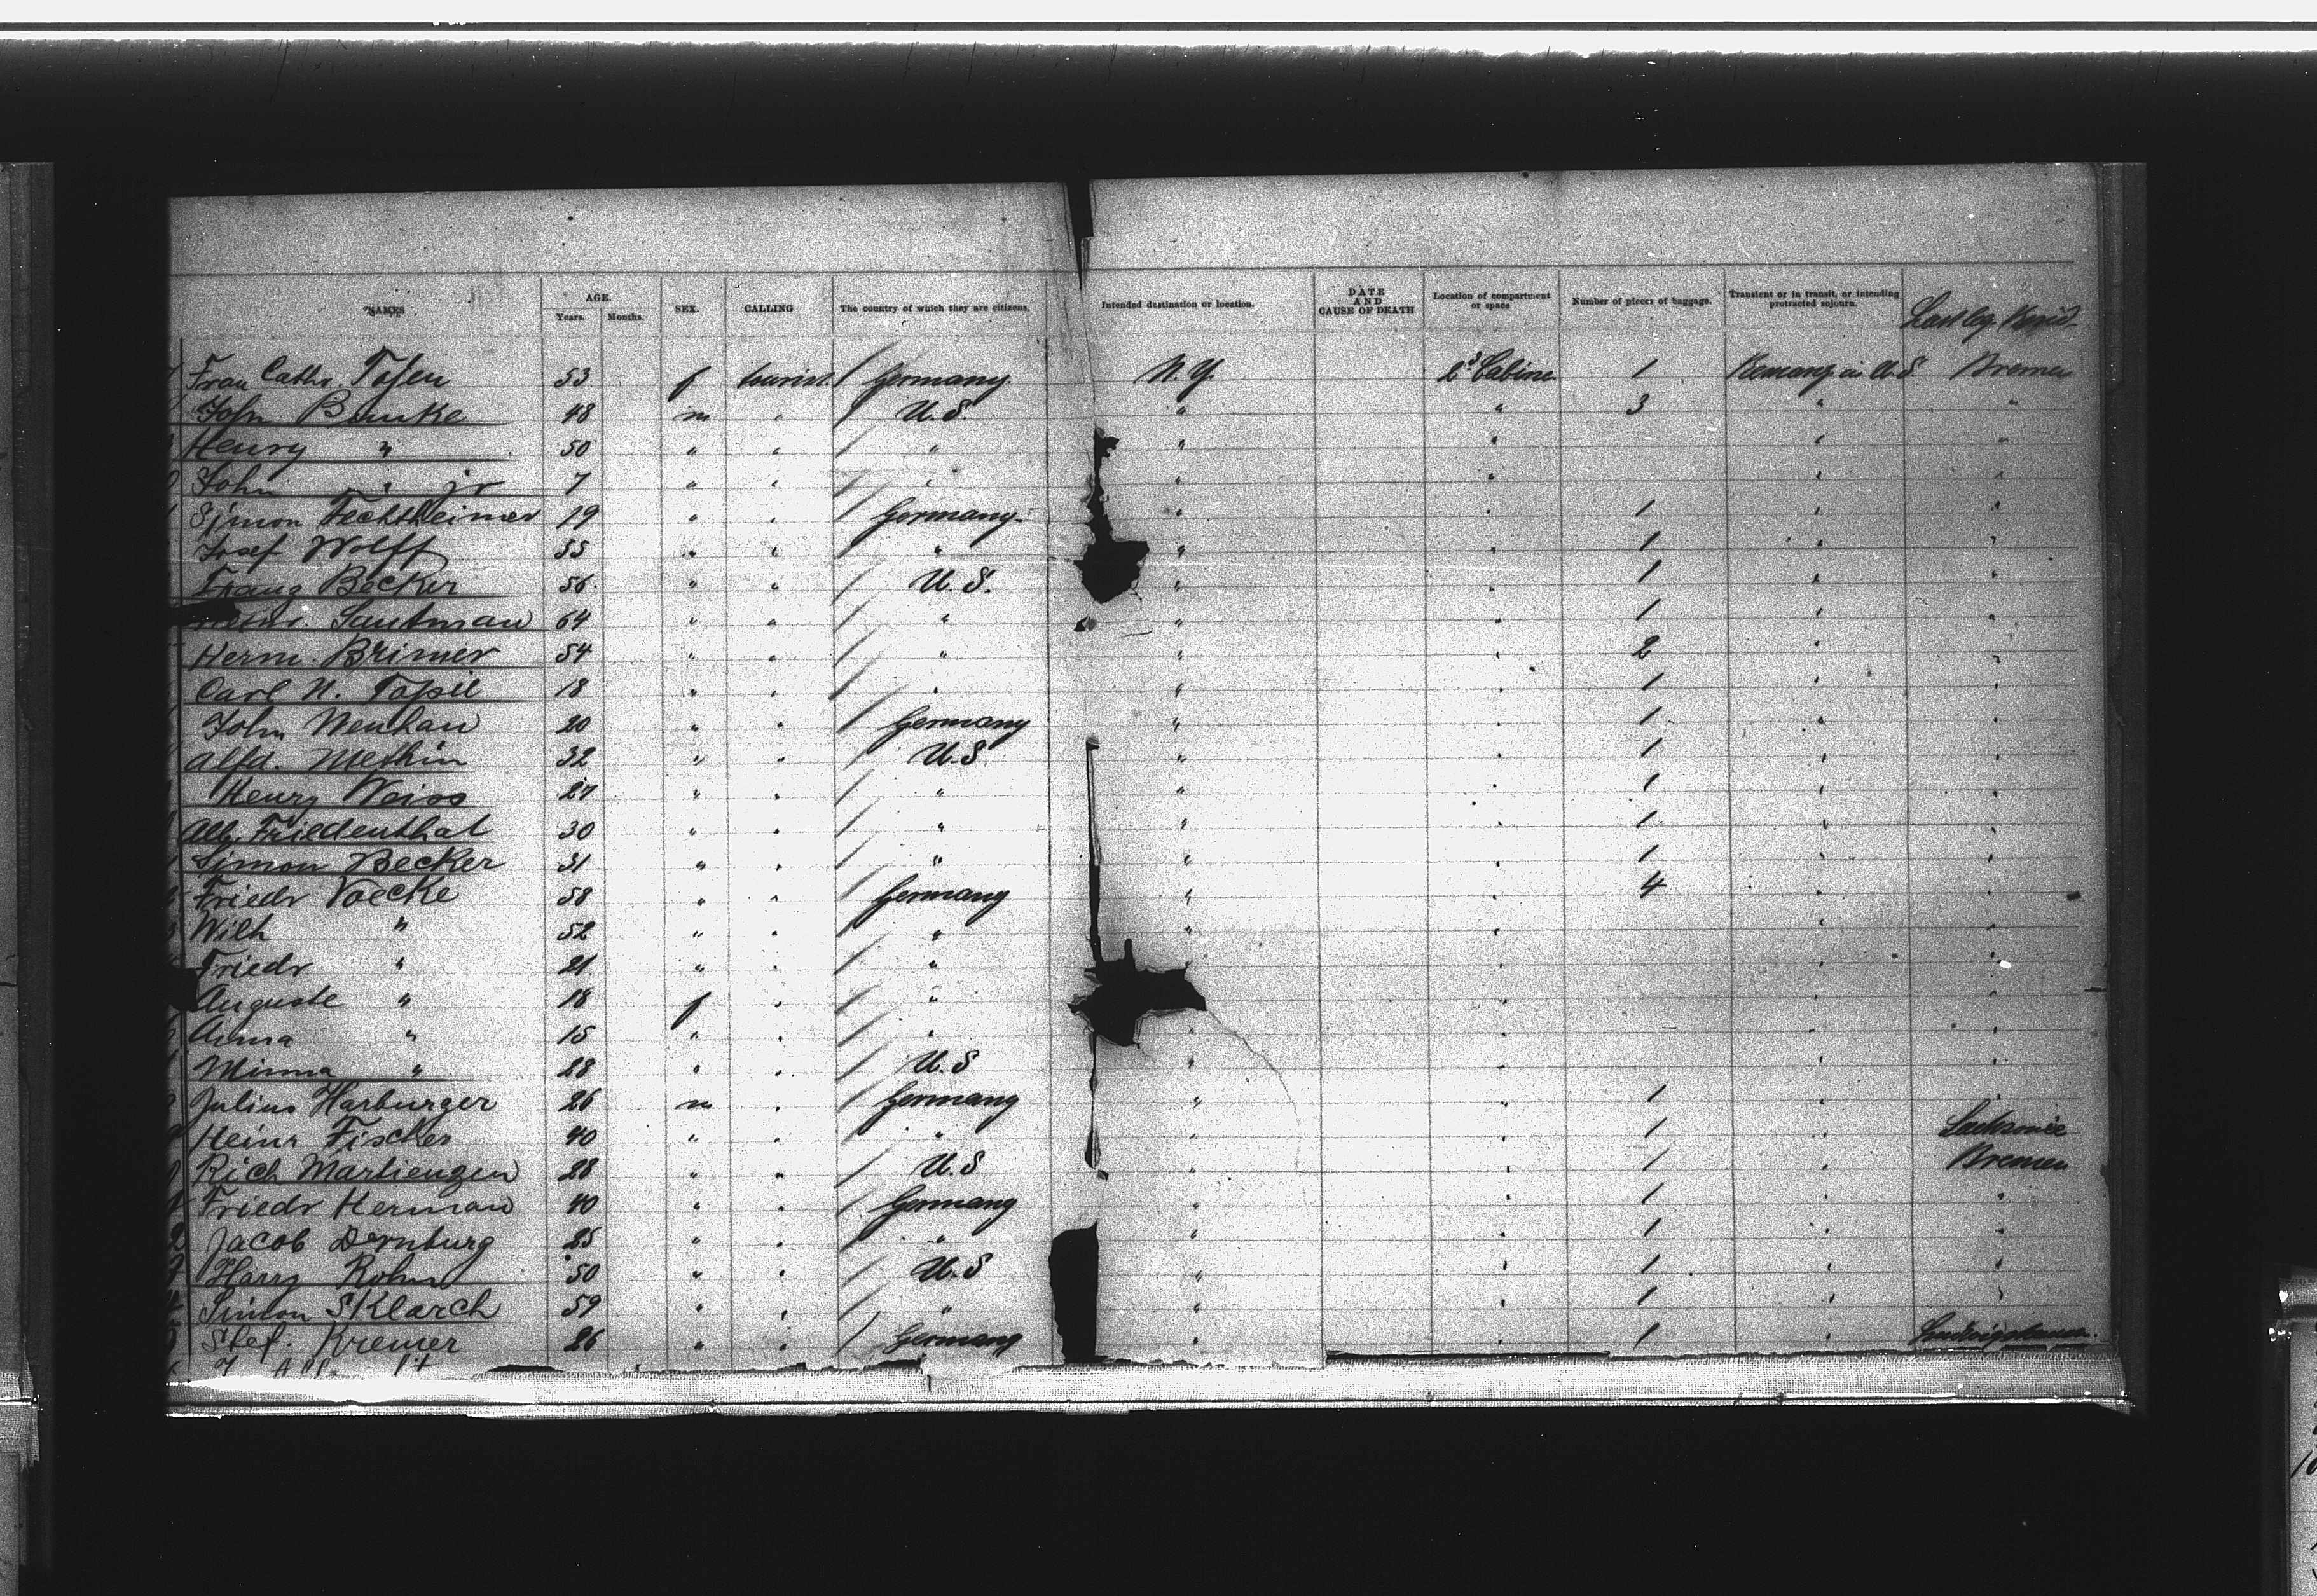 NAMES AGE. Years. Months. SEX. CALLING The country of which they are citizens. Intended destination or location. DATE AND CAUSE OF DEATH Location of compartment or space Number of pieces of baggage. Transient or in transit, or intending protracted sojourn. Last leg.
Frau Cathr. 53 f tourist Germany N.Y. 2d Cabine 1 in U.S Bremen
John Bunke 48 m " U.S. " " 3 " "
Henry " 50 " " " " " " "
John " jr 7 " " " " " "
Simon Fechtheimer 19 " " Germany " " 1 " "
Josef Wolff 55 " " " " " 1 " "
Franz Becker 56 " " U.S. " " 1 " "
Sautman 64 " " " " " 1 " "
Herm. Brimer 54 " " " " " 2 " "
Carl N. 18 " " " " " 1 " "
John Neuhau 20 " " Germany " " 1 " "
Alfd. Methin 32 " " U.S. " " 1 " "
Henry Weiss 27 " " " " " 1 " "
Alb. Friedenthal 30 " " " " " 1 " "
Simon Becker 31 " " " " " 1 " "
Friedr Voecke 58 " " Germany " " 4 " "
Wilh " 52 " " " " " " "
Friedr " 21 " " " " " " "
Auguste " 18 f " " " " "
Anna " 15 " " " " " " "
Minna " 28 " " U.S " " " "
Julius Harburger 26 m " Germany " " 1 " "
Heinr Fischer 40 " " " " " 1 "
Rich Martiengen 28 " " U.S " " 1 " Bremen
Friedr Herman 40 " " Germany " " 1 " "
Jacob Dernburg 25 " " " " " 1 " "
Harry Rohm 50 " " U.S " " 1 " "
Simon Sklarch 59 " " " " " 1 " "
Stef. Kremer 26 " " Germany " " 1 " Ludwigshaven